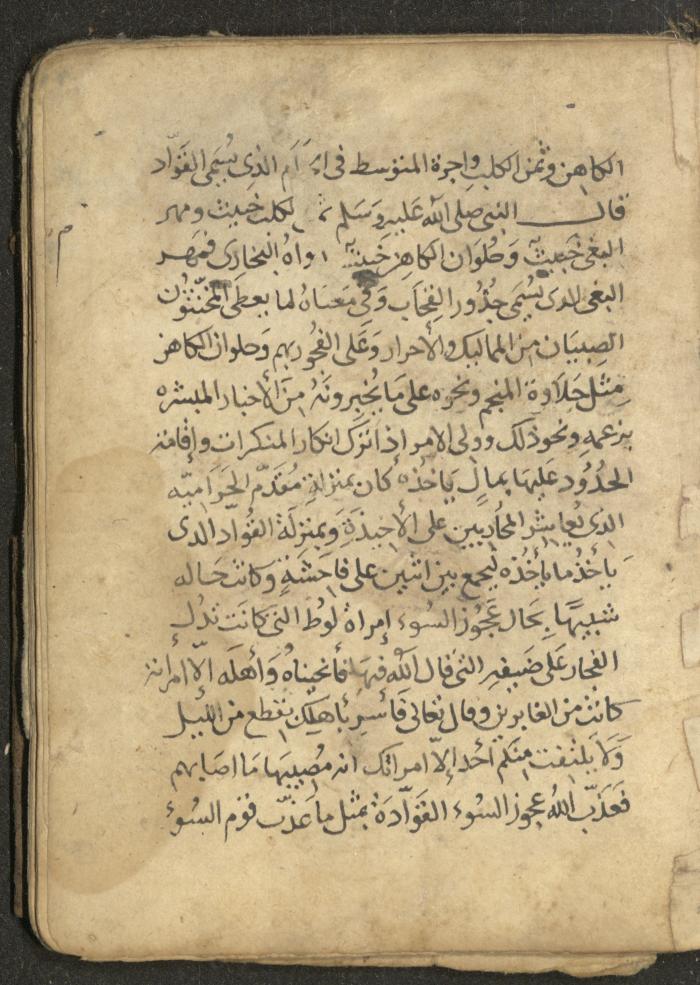 الكاهن وثمن الكلب واجرة المتوسط في الذى يُسَمى القَوّاد
قال النبى صلى الله عَليه وَسَلم ثمن الكلب خبيث ومهر
البغى خبيث وَحُلوَان الكاهن خَبيث رواهُ البخارى فمَهر
البغى الذى يُسَمى جُذُور القِحَاب وَفى مَعناهُ لما يعطَى المُخنّثون
الصِبيَان منَ المماليك والأحرار وَعَلى الفجُور بهم وَحلوان الكاهن
مِثْل حَلاَوة المنجم ونحوه على مَا يُخبِرونَهُ منَ الأخبار المبشره
بزعمهِ ونحو ذلك وولى الامر إذا ترَك انكار المنكرات وإقامة
الحدُود عليهَا بمالٍ يَاخذُه كان بمنزلةِ مُقَدّم الحَرَاميّه
الذى يُعاشر المحَاربين على الأخيذَةِ وَبمنزلَة القُوّاد الذى
يَاخذُ ما يأخُذه ليجمع بين اثنين على فاحَشَةٍ وَكانت حَاله
شبيهًا بحَال عَجُوز السُوء إمراة لوط التى كانَت تدُل
الفجار عَلى ضَيفهِ التى قال الله فيهَا فأنجيناهُ وَأهلَه إلاّ امرأته
كانت من الغابرين وقال تعالى فَأسرِ بأهلِك بقطع من الليل
وَلاَ يلتفت منكم أحد إلاّ امراتك انه مُصيبهَا مَا اصَابهم
فَعَذّب اللهُ عجوز السوء القَوّادَة بمثل ما عَذّب قوم السُوءِ
م